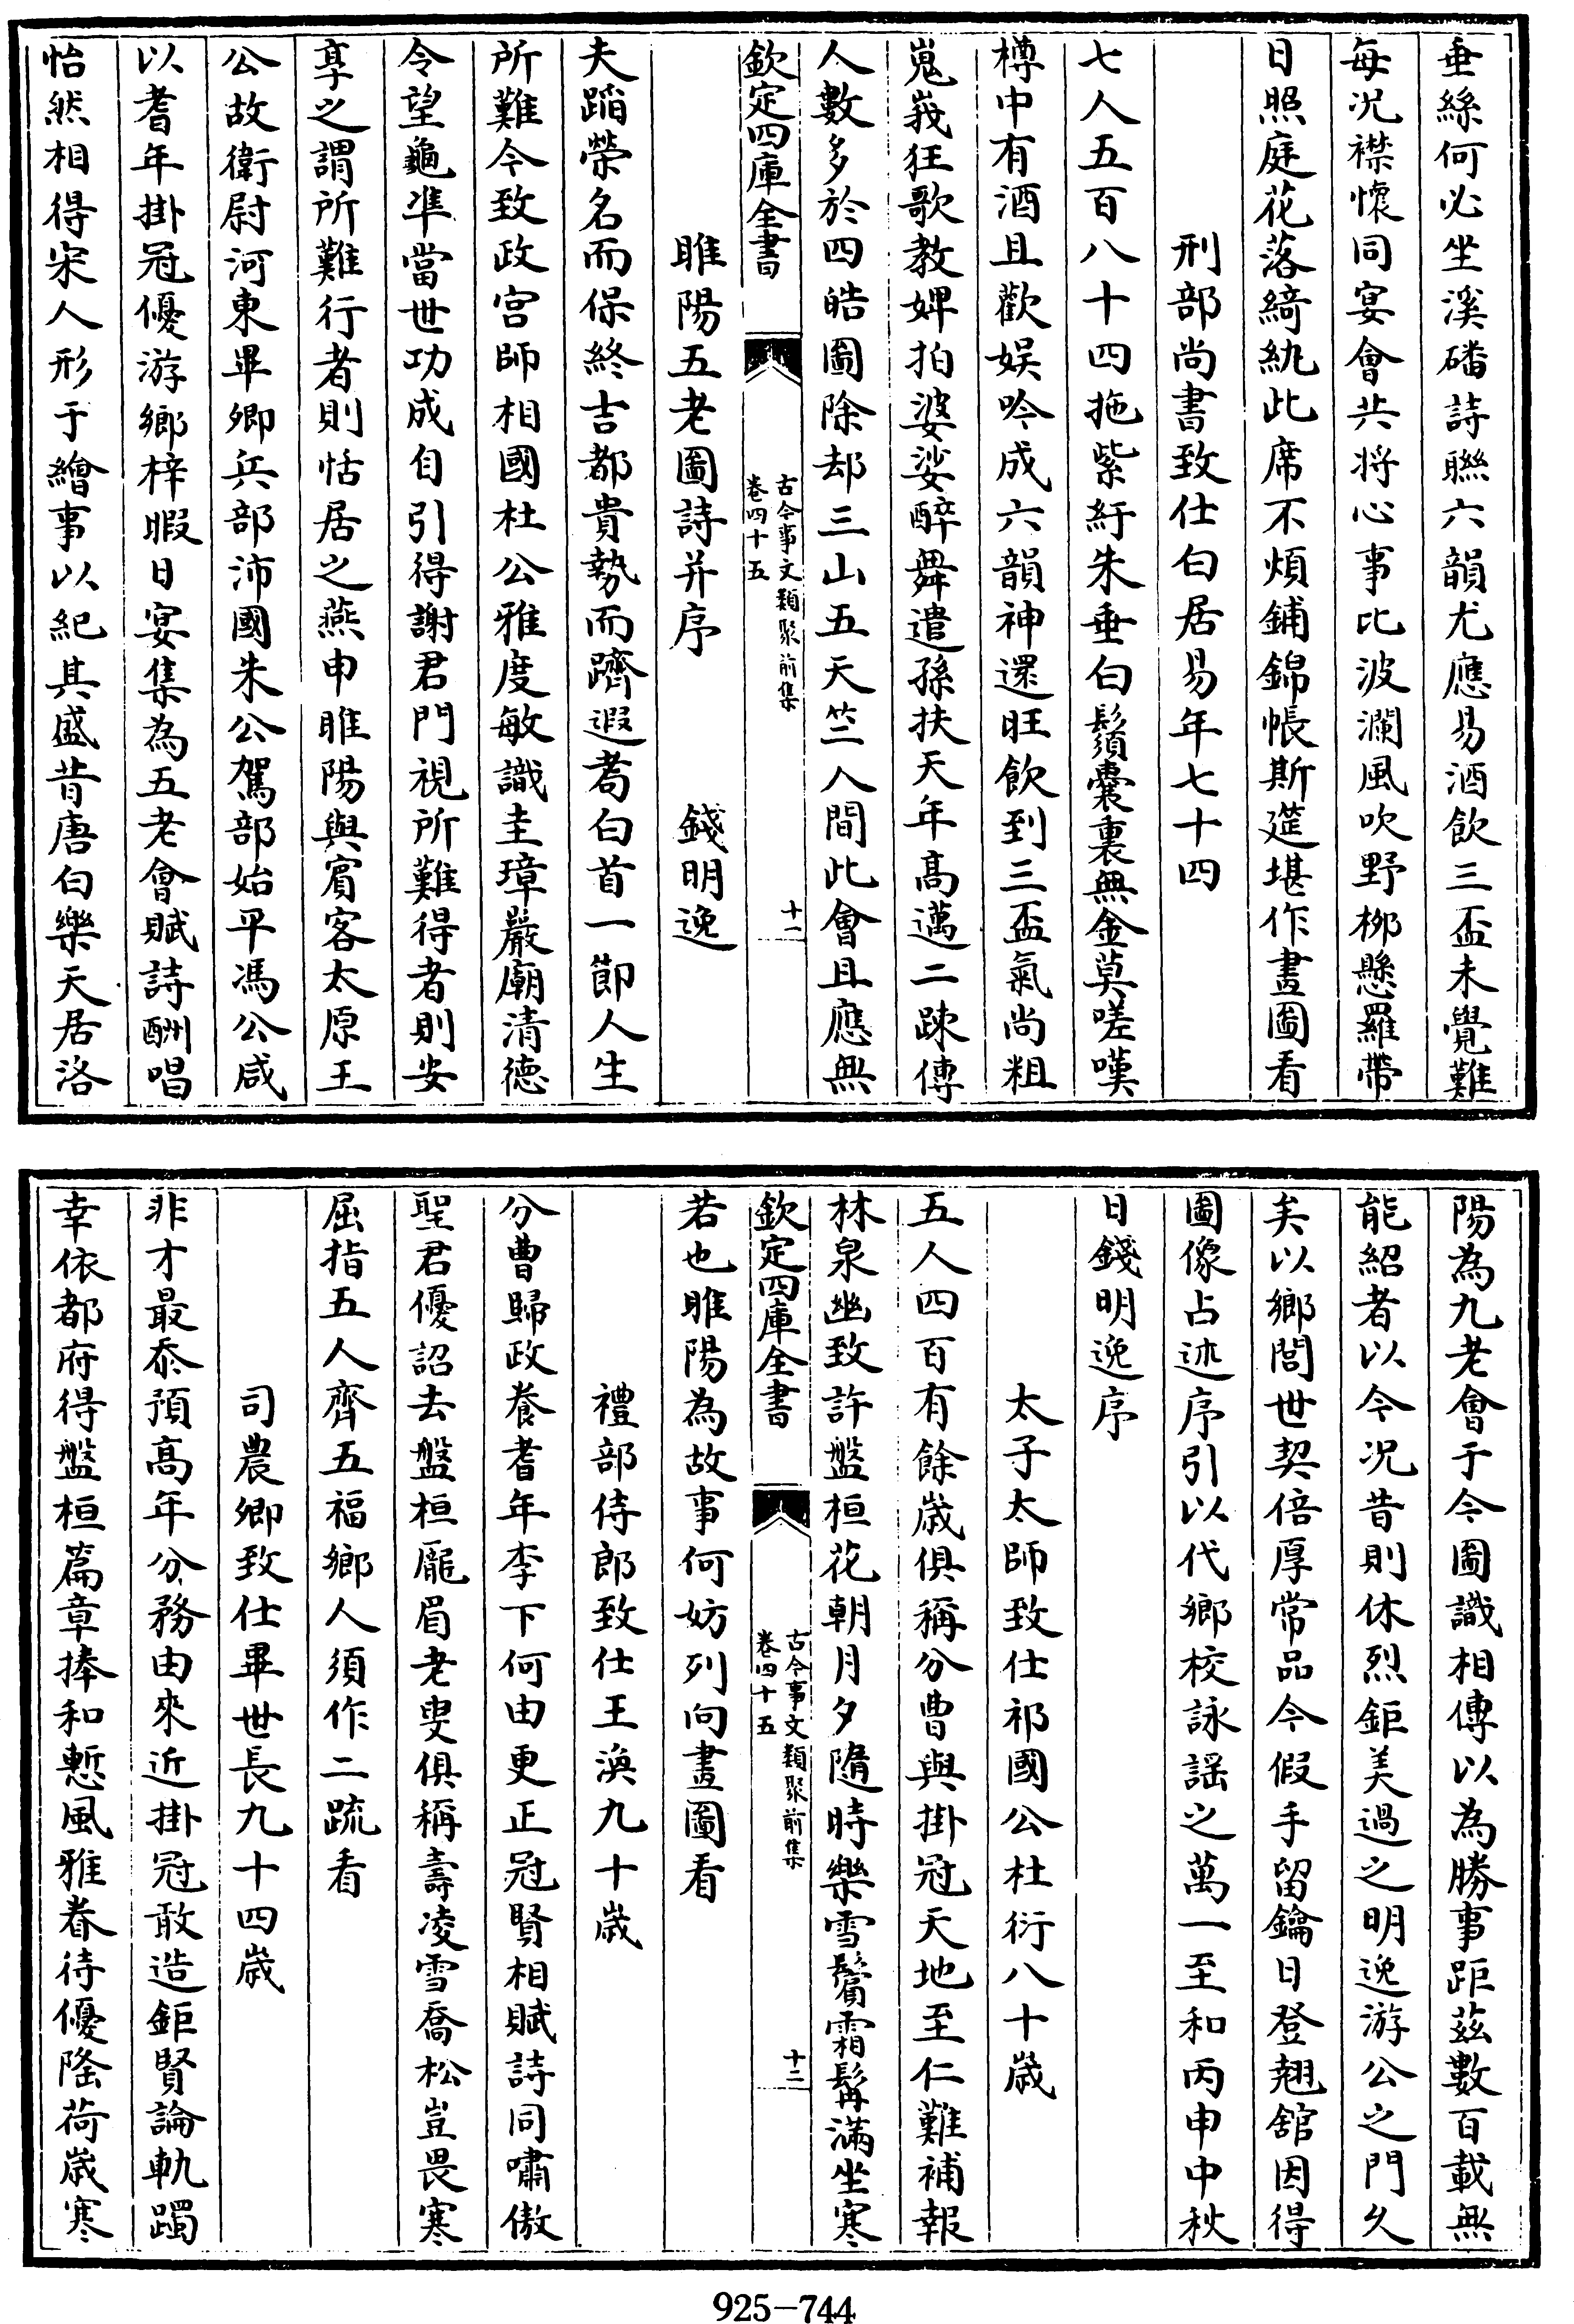 垂絲何必坐溪磻詩聯六韻尤應易酒飲三盃未覺難
每况襟懷同宴會共將心事比波瀾風吹野柳懸羅帶
日照庭花落綺紈此席不煩鋪錦帳斯筵堪作畫圖看
刑部尚書致仕白居易年七十四
七人五百八十四拖紫紆朱垂白鬚囊裏無金莫嗟嘆
樽中有酒且歡娛吟成六韻神還旺飲到三盃氣尚粗
嵬峩狂歌教婢拍婆娑醉舞遣孫扶天年髙邁二疎傅
人數多於四皓圖除却三山五天竺人間此會且應無
欽定四庫全書
古今事文類聚前集
卷四十五
十一
睢陽五老圖詩并序 錢明逸
夫蹈榮名而保終吉都貴勢而躋遐耈白首一節人生
所難今致政宫師相國杜公雅度敏識圭璋嚴廟清德
令望龜凖當世功成自引得謝君門視所難得者則安
享之謂所難行者則恬居之燕申睢陽與賓客太原王
公故衛尉河東畢卿兵部沛國朱公駕部始平馮公咸
以耆年掛冠優游鄉梓暇日宴集為五老會賦詩酬唱
怡然相得宋人形于繪事以紀其盛昔唐白樂天居洛
陽為九老會于今圖識相傳以為勝事距兹數百載無
能紹者以今况昔則休烈鉅美過之明逸游公之門久
矣以鄉閭世契倍厚常品今假手留鑰日登翹舘因得
圖像占述序引以代鄉校詠謡之萬一至和丙申中秋
日錢明逸序
太子太師致仕祁國公杜衍八十歲
五人四百有餘歲俱稱分曹與掛冠天地至仁難補報
林泉幽致許盤桓花朝月夕隨時樂雪鬢霜髯滿坐寒
欽定四庫全書
古今事文類聚前集
卷四十五
十二
若也睢陽為故事何妨列向畫圖看
禮部侍郎致仕王渙九十歲
分曹歸政養耆年李下何由更正冠賢相賦詩同嘯傲
聖君優詔去盤桓龎眉老叟俱稱壽凌雪喬松豈畏寒
屈指五人齊五福鄉人須作二疏看
司農卿致仕畢世長九十四歲
非才最忝預髙年分務由來近掛冠敢造鉅賢論軌躅
幸依都府得盤桓篇章捧和慙風雅眷待優隆荷歲寒
925-744